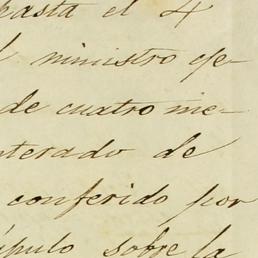 hasta el 4
ministro eje-
de cuatro me-
nterado de
conferido por
ípulo sobre la